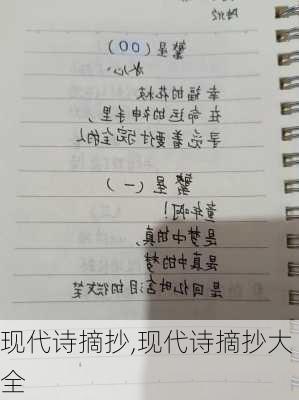 繁星（00）
冰心
幸福的花枝
在命运的神手里，
寻觅着要付完全的人
繁星（一）
童年啊！
是梦中的真，
是真中的梦
是回忆时含泪的微笑
现代诗摘抄,现代诗摘抄大
全